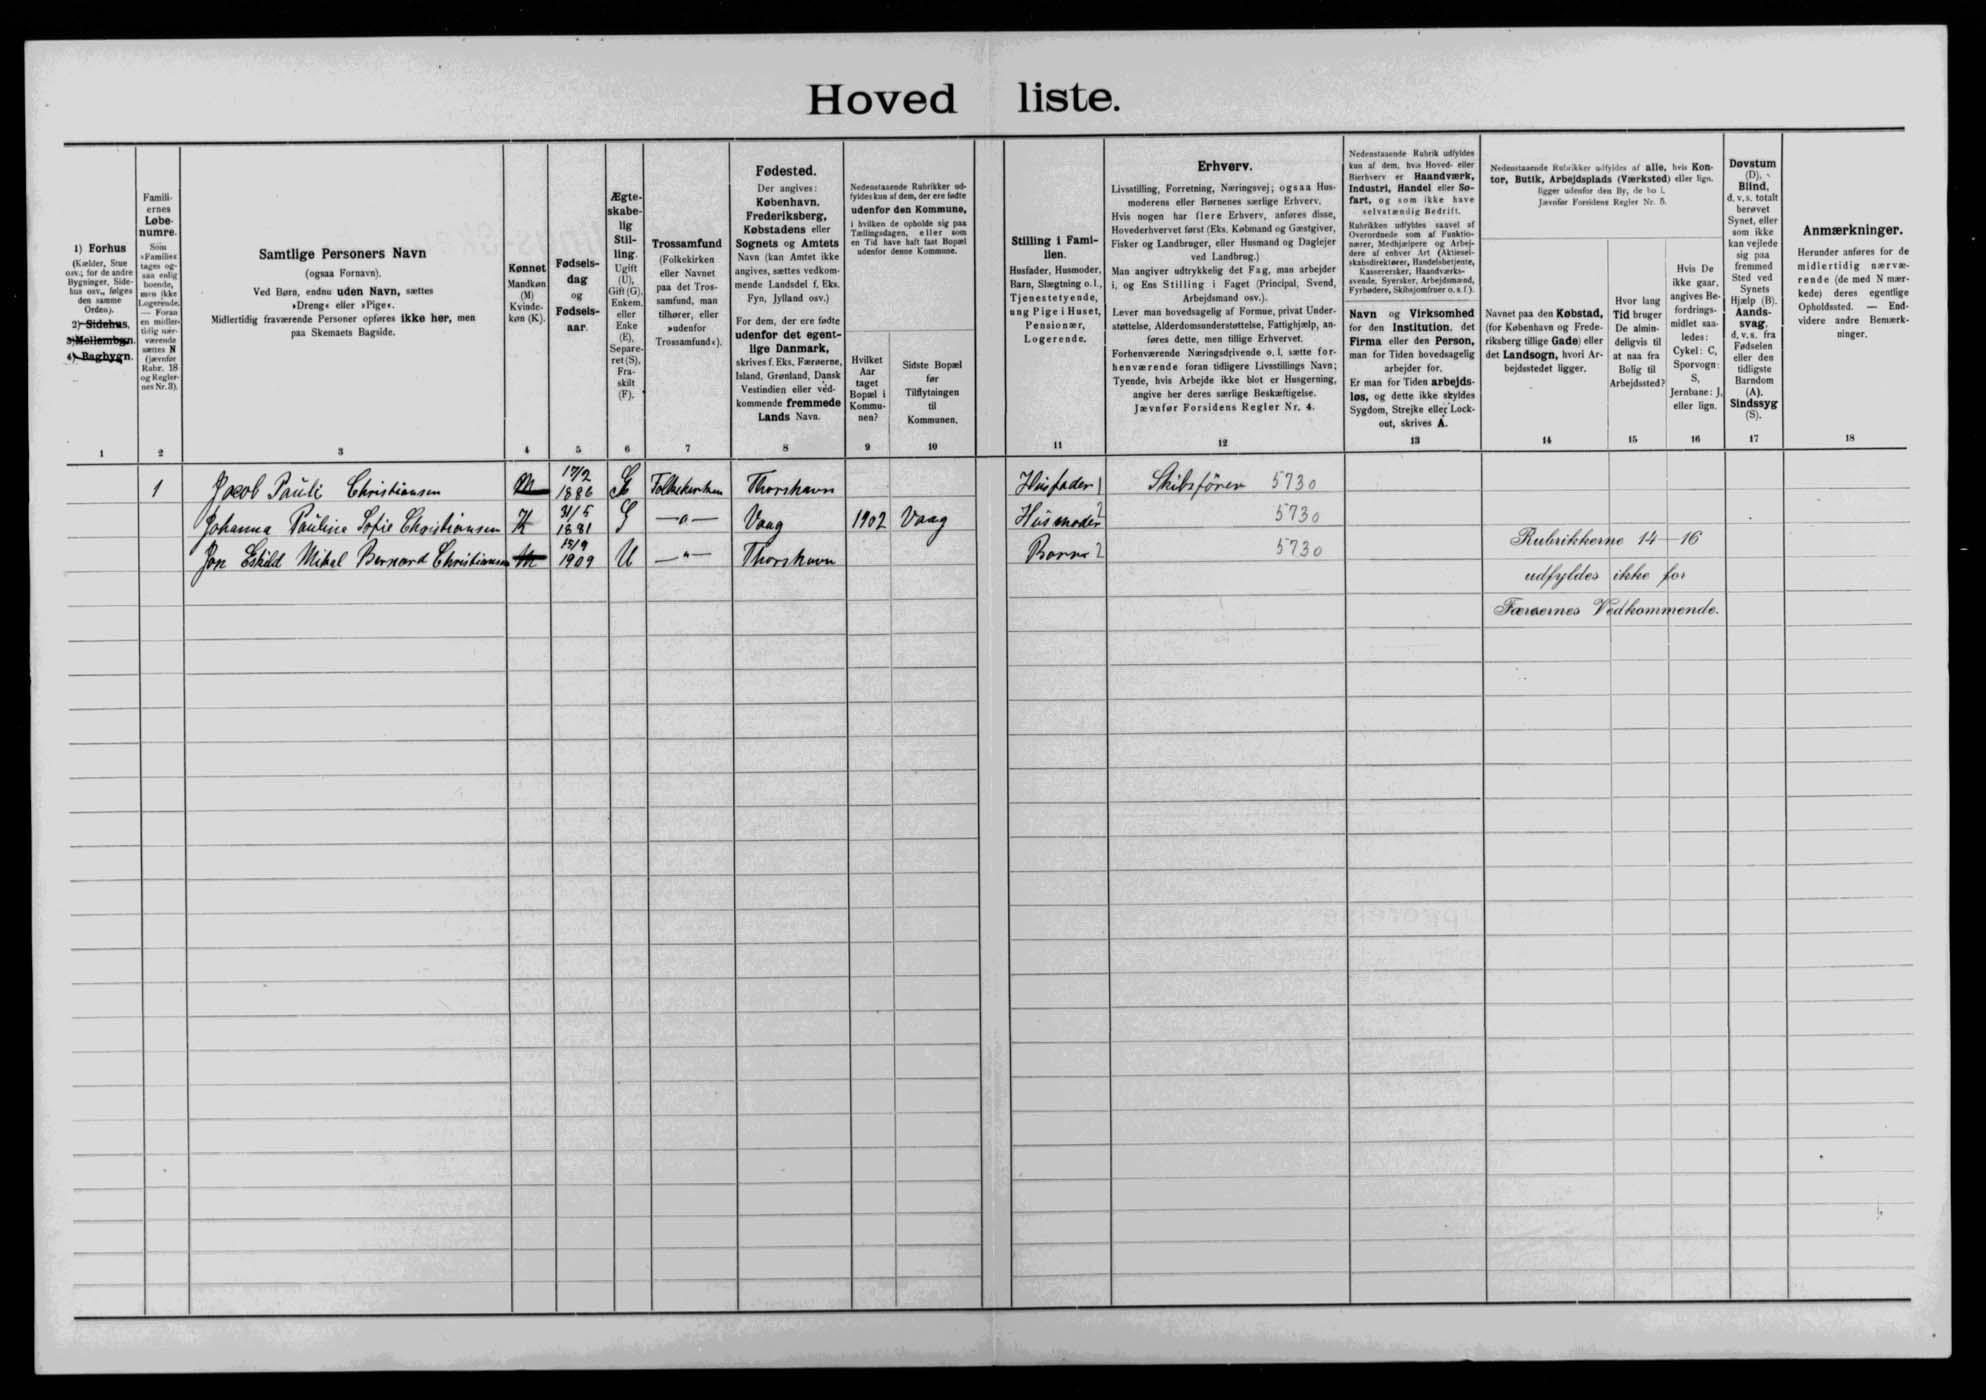 Hoved liste.
1) Forhus
(Kælder, Stue
osv.; for de andre
Bygninger, Side-
hus osv., følges
den samme
Orden).
2) Sidehus,
3) Mellembgn.
4) Bagbygn.
1
Famili-
ernes
Løbe-
numre.
Som
»Familie«
tages og-
saa enlig
boende,
men ikke
Logerende.
— Foran
en midler-
tidig nær-
værende
sættes N
(jævnfør
Rubr. 18
og Regler-
nes Nr. 3).
2
Samtlige Personers Navn
(ogsaa Fornavn).
Ved Børn, endnu uden Navn, sættes
»Dreng« eller »Pige«.
Midlertidig fraværende Personer opføres ikke her, men
paa Skemaets Bagside.
3
Kønnet
Mandkøn
(M)
Kvinde-
køn (K).
4
Fødsels-
dag
og
Fødsels-
aar.
5
Ægte-
skabe-
lig
Stil-
ling.
Ugift
(U),
Gift (G),
Enkem.
eller
Enke
(E),
Separe-
ret (S),
Fra-
skilt
(F).
6
Trossamfund
(Folkekirken
eller Navnet
paa det Tros-
samfund, man
tilhører, eller
»udenfor
Trossamfund«).
7
Fødested.
Der angives:
København,
Frederiksberg,
Købstadens eller
Sognets og Amtets
Navn (kan Amtet ikke
angives, sættes vedkom-
mende Landsdel f. Eks.
Fyn, Jylland osv.)
For dem, der ere fødte
udenfor det egent-
lige Danmark,
skrives f. Eks. Færøerne,
Island, Grønland, Dansk
Vestindien eller ved-
kommende fremmede
Lands Navn.
8
Nedenstaaende Rubrikker ud-
fyldes kun af dem, der ere fødte
udenfor den Kommune,
i hvilken de opholde sig paa
Tællingsdagen, eller som
en Tid have haft fast Bopæl
udenfor denne Kommune.
Hvilket
Aar
taget
Bopæl i
Kommu-
nen?
9
Sidste Bopæl
før
Tilflytningen
til
Kommunen.
10
Stilling i Fami-
lien.
Husfader, Husmoder,
Barn, Slægtning o. l.,
Tjenestetyende,
ung Pige i Huset,
Pensionær,
Logerende.
11
Erhverv.
Livsstilling, Forretning, Næringsvej; ogsaa Hus-
moderens eller Børnenes særlige Erhverv.
Hvis nogen har flere Erhverv, anføres disse,
Hovederhvervet først (Eks. Købmand og Gæstgiver,
Fisker og Landbruger, eller Husmand og Daglejer
ved Landbrug.)
Man angiver udtrykkelig det Fag, man arbejder
i, og Ens Stilling i Faget (Principal, Svend,
Arbejdsmand osv.).
Lever man hovedsagelig af Formue, privat Under-
støttelse, Alderdomsunderstøttelse, Fattighjælp, an-
føres dette, men tillige Erhvervet.
Forhenværende Næringsdrivende o. l. sætte for-
henværende foran tidligere Livsstillings Navn;
Tyende, hvis Arbejde ikke blot er Husgerning,
angive her deres særlige Beskæftigelse.
Jævnfør Forsidens Regler Nr. 4.
12
Nedenstaaende Rubrik udfyldes
kun af dem, hvis Hoved- eller
Bierhverv er Haandværk,
Industri, Handel eller Sø-
fart, og som ikke have
selvstændig Bedrift.
Rubrikken udfyldes saavel af
Overordnede som af Funktio-
nærer, Medhjælpere og Arbej-
dere af enhver Art (Aktiesel-
skabsdirektører, Handelsbetjente,
Kassererskер, Haandværks-
svende, Syersker, Arbejdsmænd,
Fyrbødere, Skibsjomfruer o. s. f.).
Navn og Virksomhed
for den Institution, det
Firma eller den Person,
man for Tiden hovedsagelig
arbejder for.
Er man for Tiden arbejds-
løs, og dette ikke skyldes
Sygdom, Strejke eller Lock-
out, skrives A.
13
Nedenstaaende Rubrikker udfyldes af alle, hvis Kon-
tor, Butik, Arbejdsplads (Værksted) eller lign.
ligger udenfor den By, de bo i.
Jævnfør Forsidens Regler Nr. 5.
Navnet paa den Købstad,
(for København og Frede-
riksberg tillige Gade) eller
det Landsogn, hvori Ar-
bejdsstedet ligger.
14
Hvor lang
Tid bruger
De almin-
deligvis til
at naa fra
Bolig til
Arbejdssted?
15
Hvis De
ikke gaar,
angives Be-
fordrings-
midlet saa-
ledes:
Cykel: C,
Sporvogn:
S,
Jernbane: J,
eller lign.
16
Døvstum
(D),
Blind,
d. v. s. totalt
berøvet
Synet, eller
som ikke
kan vejlede
sig paa
fremmed
Sted ved
Synets
Hjælp (B).
Aands-
svag,
d. v. s. fra
Fødselen
eller den
tidligste
Barndom
(A).
Sindssyg
(S).
17
Anmærkninger.
Herunder anføres for de
midlertidig nærvæ-
rende (de med N mær-
kede) deres egentlige
Opholdssted. — End-
videre andre Bemærk-
ninger.
18
1 Jacob Pauli Christiansen M 17/2 1886 G Folkekirken Thorshavn Husfader 1 Skibsfører 5730
Johanna Paulina Sofie Christiansen K 31/5 1881 G —„— Vaag 1902 Vaag Husmoder 2 5730
Jon Eskild Mikal Bernard Christiansen M 15/9 1909 U —„— Thorshavn Barn 2 5730
Rubrikkerne 14—16
udfyldes ikke for
Færøernes Vedkommende.